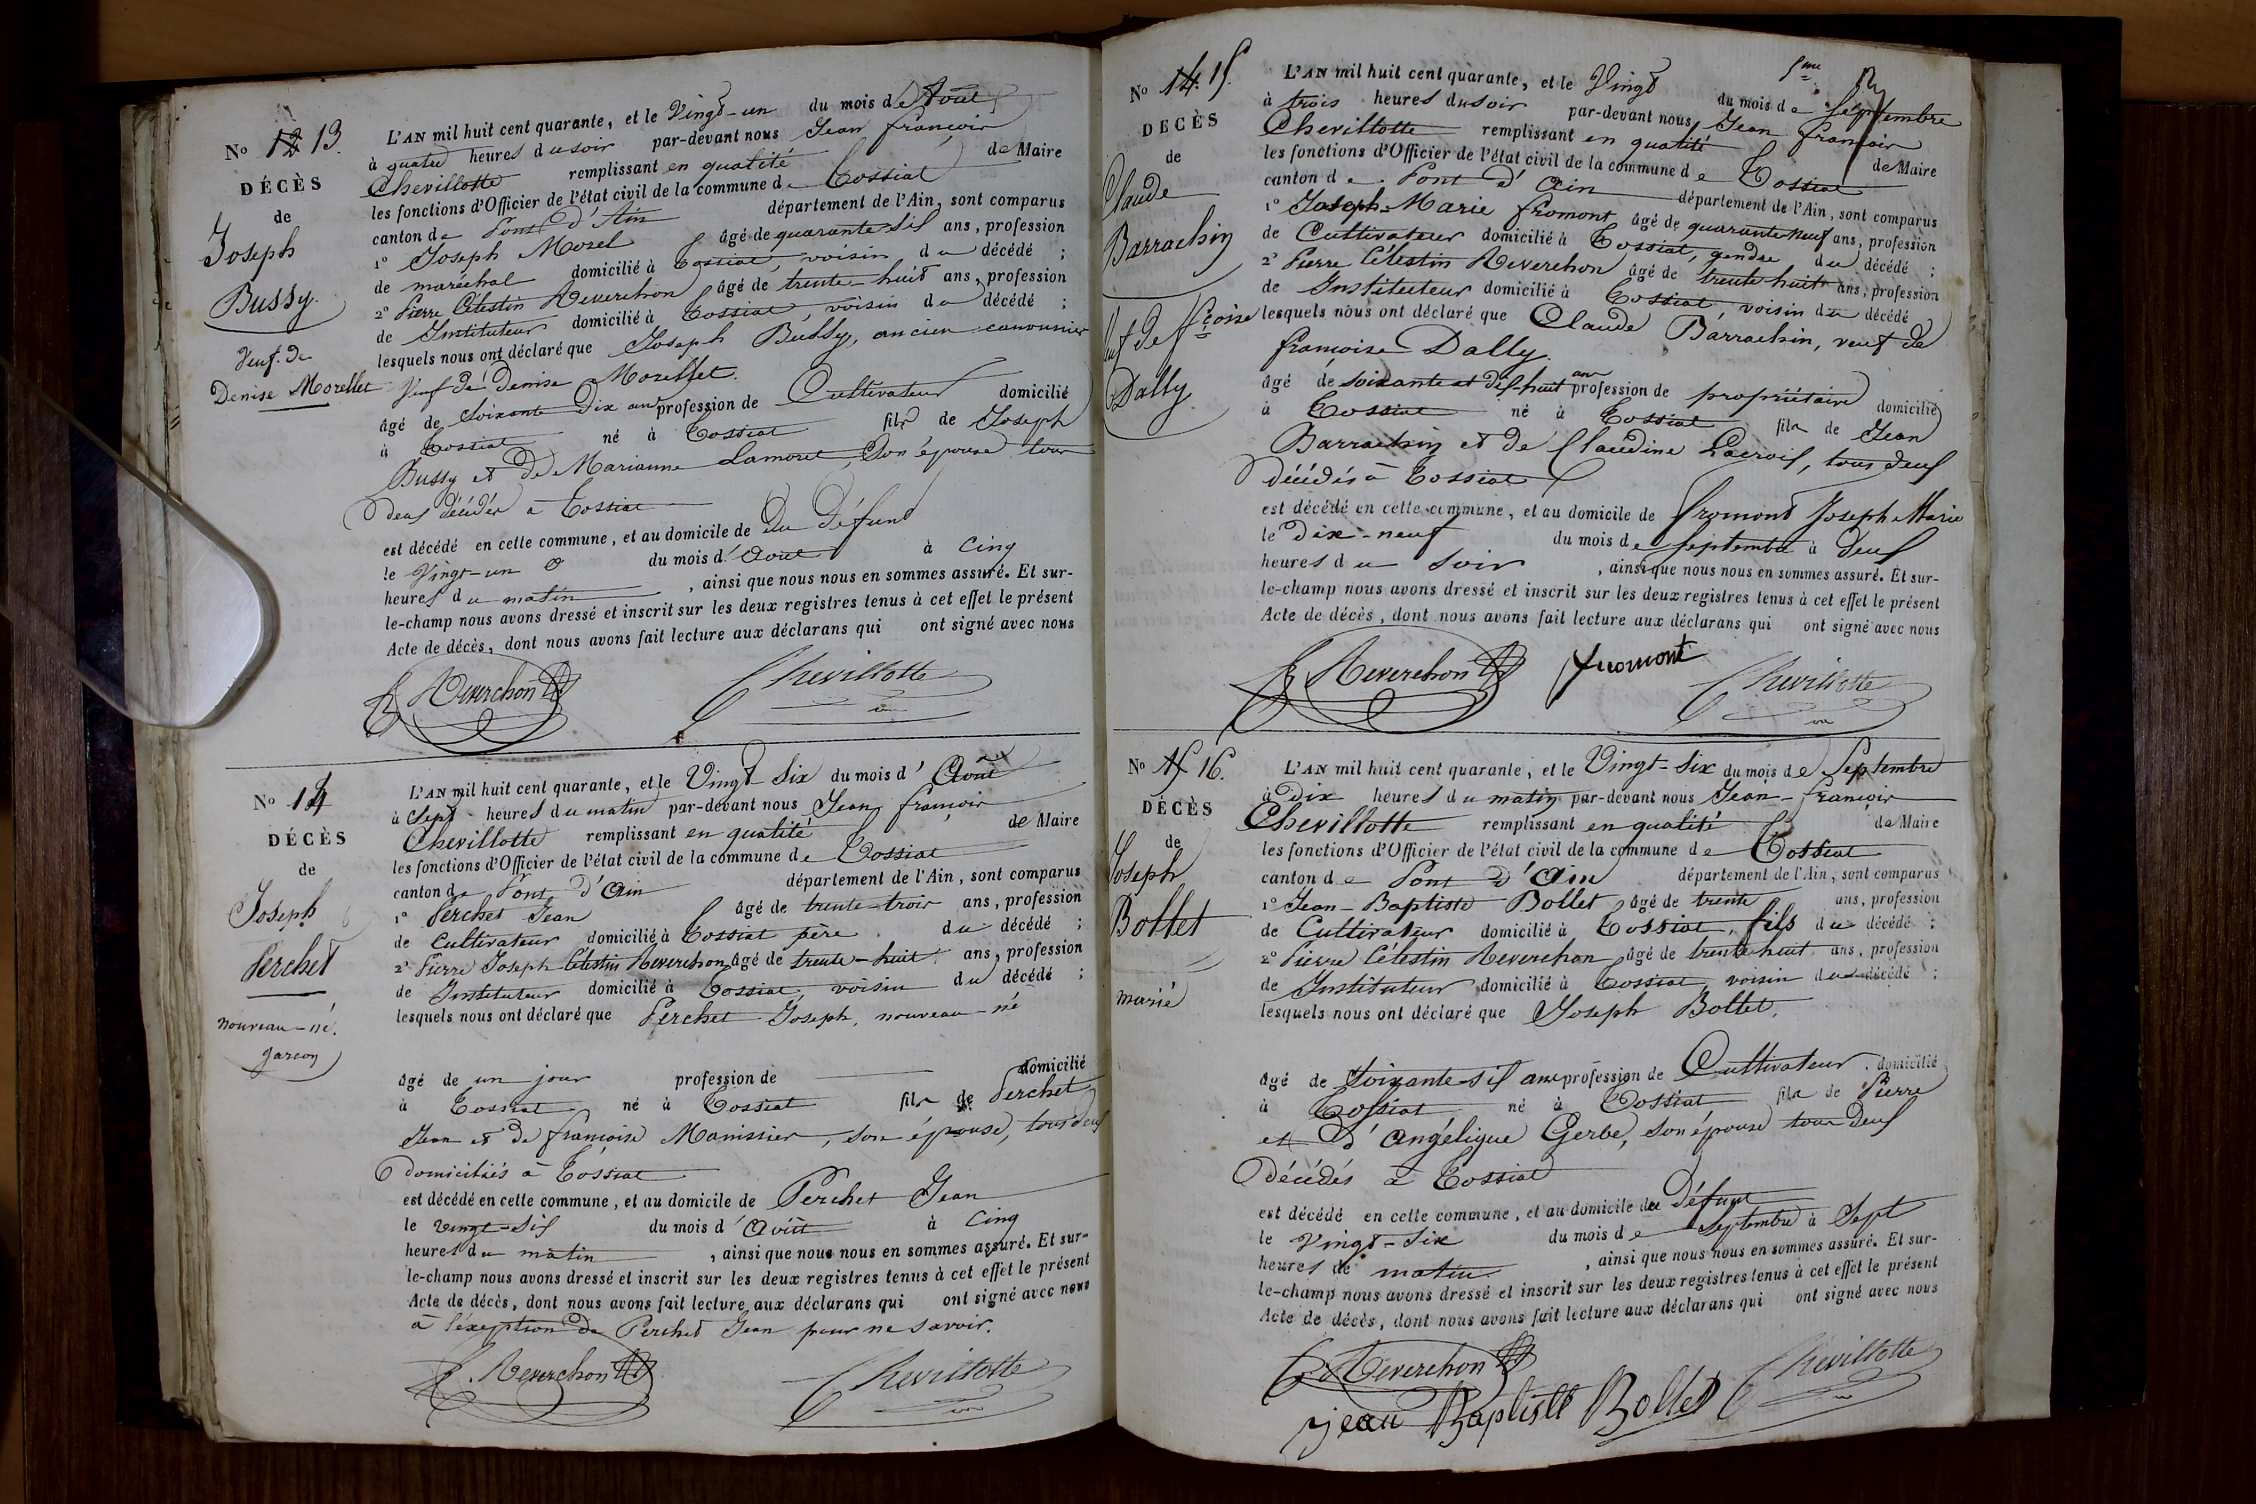 No 13.
DÉCÈS
de
Joseph
Bussy.
Veuf. de
Denise Morellet
L'AN mil huit cent quarante, et le Vingt-un du mois d'Août
à quatre heures du soir par-devant nous Jean françois
Chevillotte remplissant en qualité de Maire
les fonctions d'Officier de l'état civil de la commune de Tossiat
canton de Pont d'Ain département de l'Ain, sont comparus
1° Joseph Morel âgé de quarante-six ans, profession
de maréchal domicilié à Tossiat, voisin du décédé ;
2° Pierre Célestin Reverchon âgé de trente-huit ans, profession
de Instituteur domicilié à Tossiat, voisin du décédé ;
lesquels nous ont déclaré que Joseph Bussy, ancien canonnier
Veuf de Denise Morellet.
âgé de soixante dix ans profession de Cultivateur domicilié
à Tossiat né à Tossiat fils de Joseph
Bussy et de Marianne Lamoret, son épouse tous
deux décédés à Tossiat
est décédé en cette commune, et au domicile de du défunt
le Vingt-un du mois d'Août à cinq
heures du matin , ainsi que nous nous en sommes assuré. Et sur-
le-champ nous avons dressé et inscrit sur les deux registres tenus à cet effet le présent
Acte de décès, dont nous avons fait lecture aux déclarans qui ont signé avec nous
Reverchon Chevillotte
No 14
DÉCÈS
de
Joseph
Perchet
nouveau-né.
garçon
L'AN mil huit cent quarante, et le Vingt-Six du mois d'Août
à Sept heures du matin par-devant nous Jean françois
Chevillotte remplissant en qualité de Maire
les fonctions d'Officier de l'état civil de la commune de Tossiat
canton de Pont d'Ain département de l'Ain, sont comparus
1° Perchet Jean âgé de trente-trois ans, profession
de Cultivateur domicilié à Tossiat père du décédé ;
2° Pierre Joseph Célestin Reverchon âgé de trente-huit ans, profession
de Instituteur domicilié à Tossiat voisin du décédé ;
lesquels nous ont déclaré que Perchet Joseph, nouveau-né
âgé de un jour profession de domicilié
à Tossiat né à Tossiat fils de Perchet
Jean et de françoise Manissier, son épouse, tous deux
domiciliés à Tossiat
est décédé en cette commune, et au domicile de Perchet Jean
le vingt-six du mois d'Août à cinq
heures du matin , ainsi que nous nous en sommes assuré. Et sur-
le-champ nous avons dressé et inscrit sur les deux registres tenus à cet effet le présent
Acte de décès, dont nous avons fait lecture aux déclarans qui ont signé avec nous
à l'éxeption de Perchet Jean pour ne savoir.
Reverchon Chevillotte
No 14. 15.
DÉCÈS
de
Claude
Barrachin
veuf de fçoise
Dally.
L'AN mil huit cent quarante, et le Vingt du mois de Septembre
à trois heures du soir par-devant nous Jean françois
Chevillotte remplissant en qualité de Maire
les fonctions d'Officier de l'état civil de la commune de Tossiat
canton de Pont d'Ain département de l'Ain, sont comparus
1° Joseph-Marie fromont âgé de quarante neuf ans, profession
de Cultivateur domicilié à Tossiat, gendre du décédé ;
2° Pierre Célestin Reverchon âgé de trente huit ans, profession
de Instituteur domicilié à Tossiat, voisin du décédé
lesquels nous ont déclaré que Claude Barrachin, veuf de
françoise Dally.
âgé de soixante et dix-huit ans profession de propriétaire domicilié
à Tossiat né à Tossiat fils de Jean
Barrachin et de Claudine Lacroix, tous deux
décédés à Tossiat
est décédé en cette commune, et au domicile de fromont Joseph Marie
le dix-neuf du mois de Septembre à deux
heures du soir , ainsi que nous nous en sommes assuré. Et sur-
le-champ nous avons dressé et inscrit sur les deux registres tenus à cet effet le présent
Acte de décès, dont nous avons fait lecture aux déclarans qui ont signé avec nous
Reverchon fromont Chevillotte
No 15 16.
DÉCÈS
de
Joseph
Bollet
marié
L'AN mil huit cent quarante, et le Vingt-Six du mois de Septembre
à dix heures du matin par-devant nous Jean-françois
Chevillotte remplissant en qualité de Maire
les fonctions d'Officier de l'état civil de la commune de Tossiat
canton de Pont d'Ain département de l'Ain, sont comparus
1° Jean-Baptiste Bollet âgé de trente ans, profession
de Cultivateur domicilié à Tossiat, fils du décédé ;
2° Pierre Célestin Reverchon âgé de trente huit ans, profession
de Instituteur domicilié à Tossiat, voisin du décédé ;
lesquels nous ont déclaré que Joseph Bollet,
âgé de soixante-six ans profession de Cultivateur domicilié
à Tossiat né à Tossiat fils de Pierre
et d'Angélique Gerbe, son épouse tous deux
décédés à Tossiat
est décédé en cette commune, et au domicile du défunt
le Vingt-Six du mois de Septembre à Sept
heures de matin , ainsi que nous nous en sommes assuré. Et sur-
le-champ nous avons dressé et inscrit sur les deux registres tenus à cet effet le présent
Acte de décès, dont nous avons fait lecture aux déclarans qui ont signé avec nous
Reverchon Chevillotte
jean Baptiste Bollet